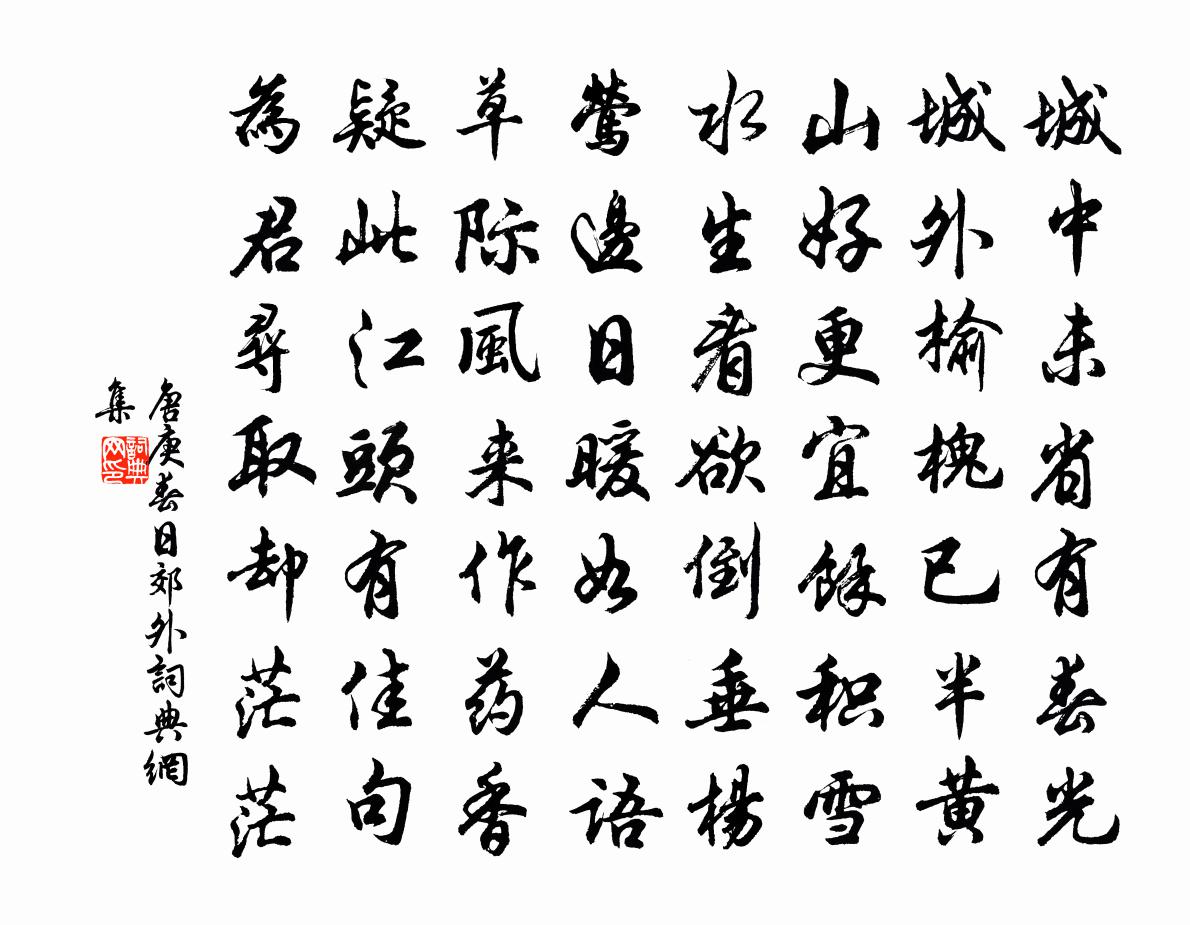 城中未省有春光
城外榆槐已半黄
山好更宜餘积雪
水生看欲倒垂楊
鶯邊日暖如人語
草际風来作药香
疑此江頭有佳句
為君尋取却茫茫
唐庚春日郊外詞典網
集
詞典网印